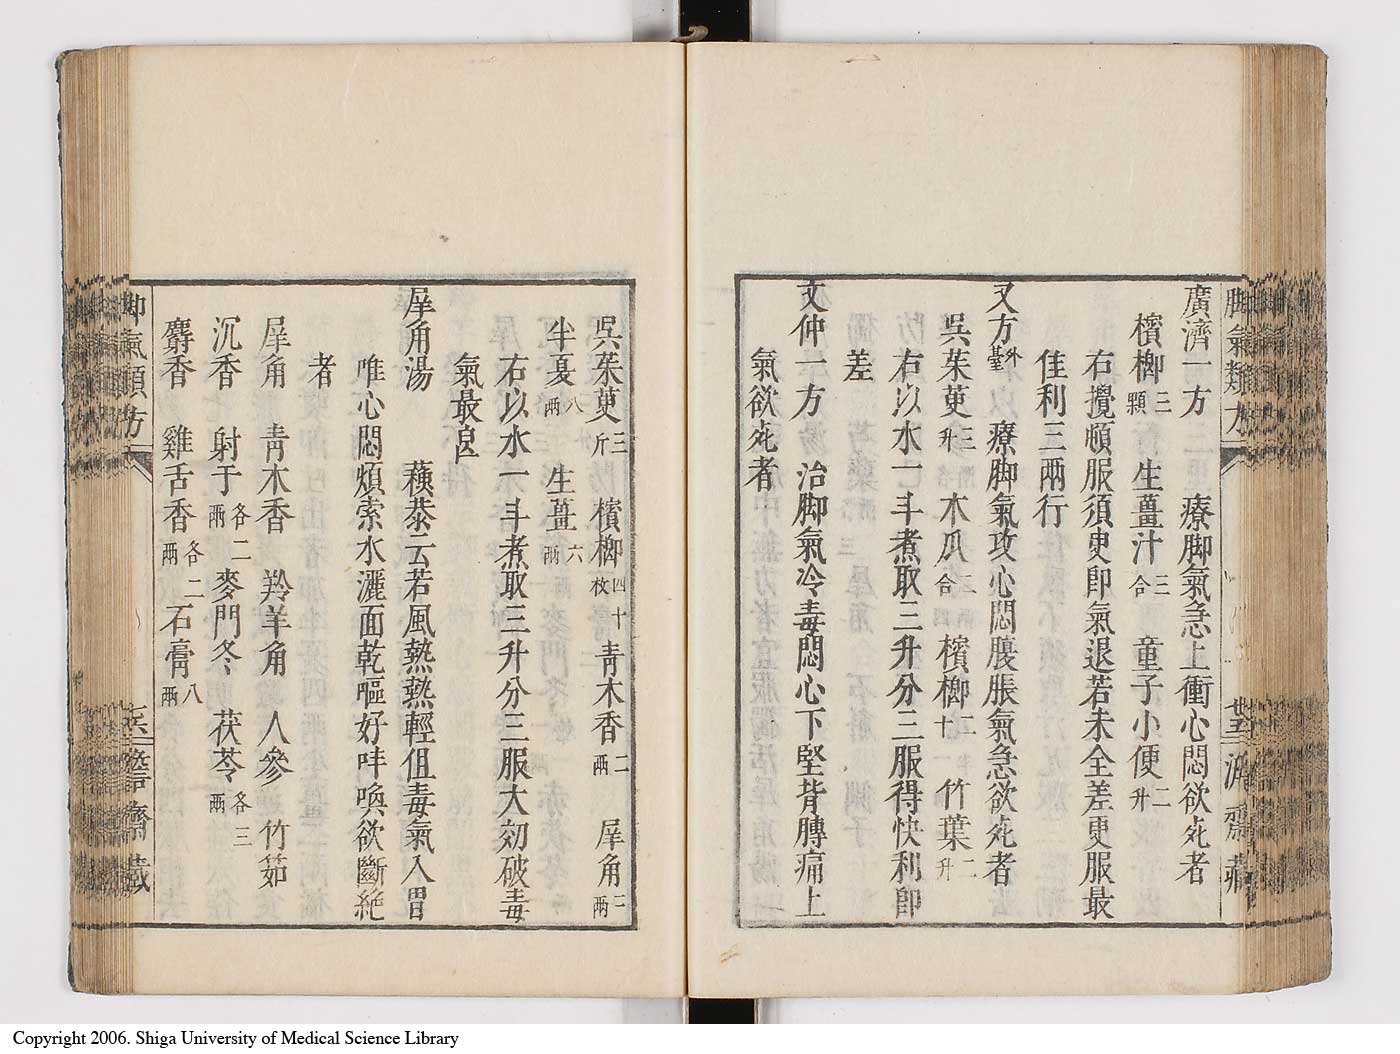 脚氣類方
廣濟一方　療脚氣急上衝心悶欲死者
檳榔三顆　生薑汁三合　童子小便二升
右攪頓服須臾卽氣退若未全差更服最
佳利三兩行
又方外臺　療脚氣攻心悶腹脹氣急欲死者
吳茱萸三升　木瓜二合　檳榔二十　竹葉二升
右以水一斗煮取三升分三服得快利卽
差
文仲一方　治脚氣冷毒悶心下堅背膊痛上
氣欲死者
吳茱萸三斤　檳榔四十枚　青木香二兩　犀角三兩
半夏八兩　生薑六兩
右以水一斗煮取三升分三服大効破毒
氣最良
犀角湯　蘓恭云若風熱熱輕但毒氣入胃
唯心悶煩索水灑面乾嘔好呌喚欲斷絶
者
犀角　青木香　羚羊角　人參　竹茹
沉香　射干各二兩　麥門冬　茯苓各三兩
麝香　雞舌香各二兩　石膏八兩
脚氣類方
Copyright 2006. Shiga University of Medical Science Library